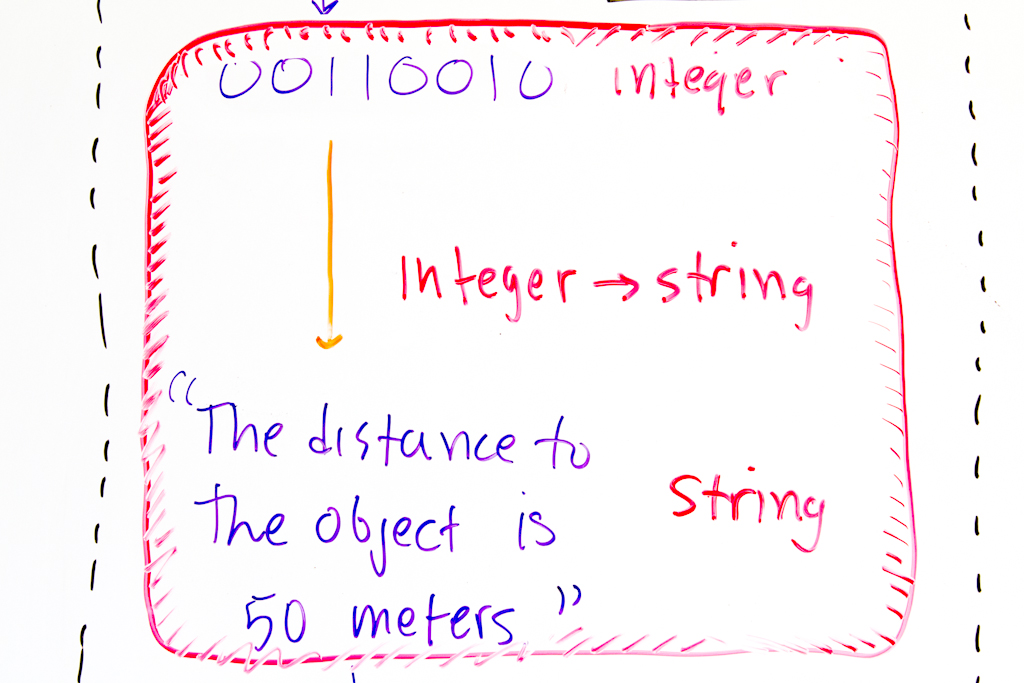 00110010 Integer
Integer → string
"The distance to
The object is
50 meters"
String